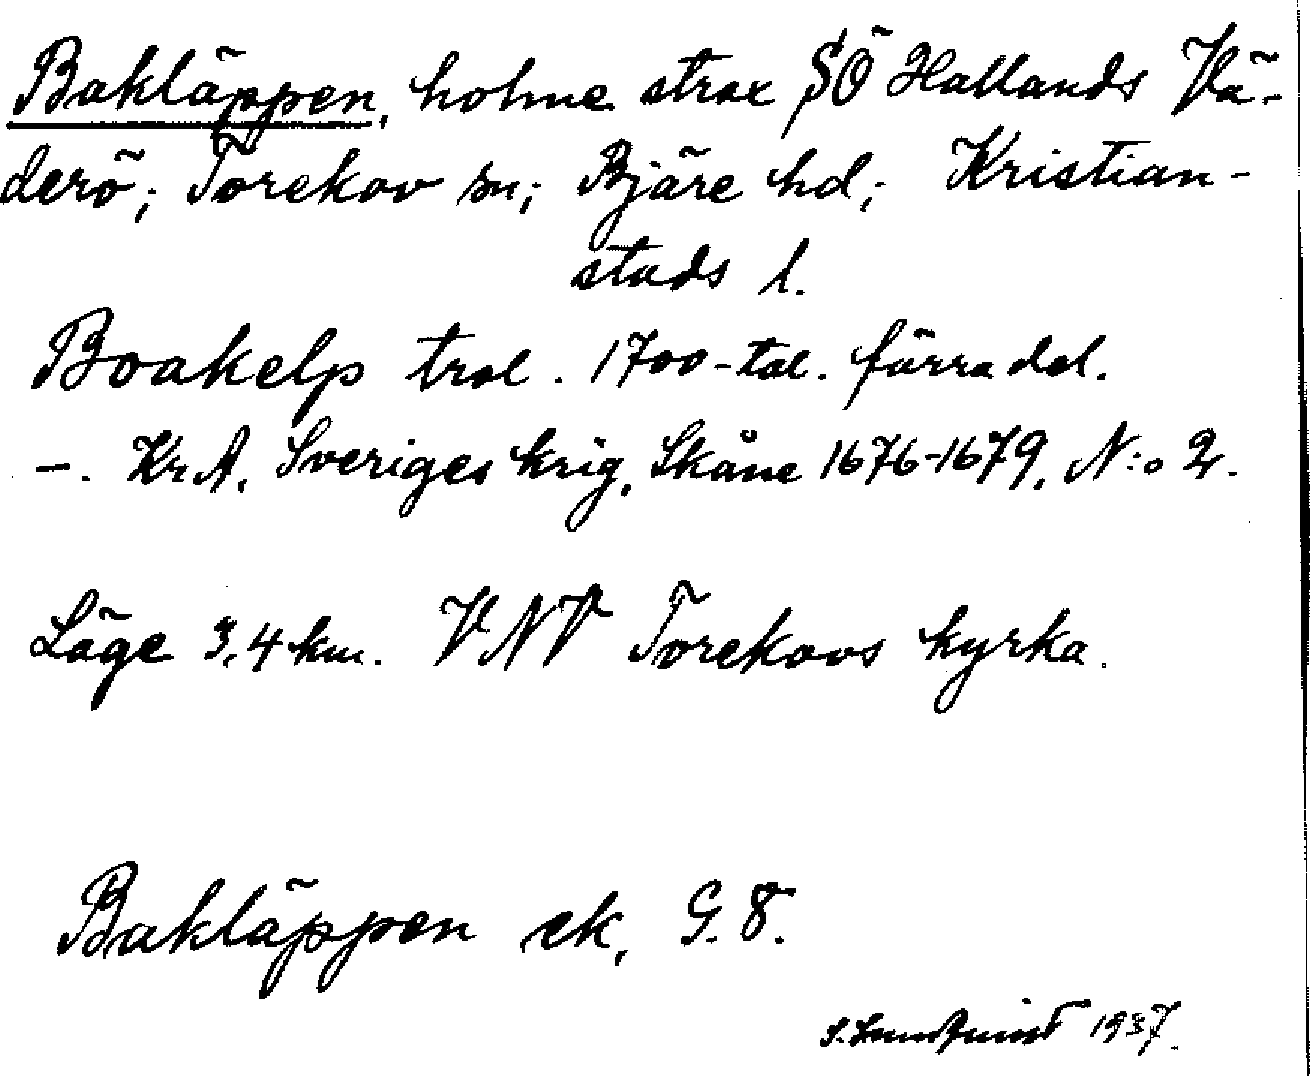 Bakläppen, holme strax SÖ Hallands Vä-
derö; Torekov sn; Bjäre hd; Kristian-
stads l.
Boakelp trol. 1700-tal. förra del.
–. KrA. Sveriges krig, Skåne 1676-1679. N:o 2.
Läge 3,4 km. VNV Torekovs kyrka.
Bakläppen ek, G. 8.
S. Lundquist 1937.